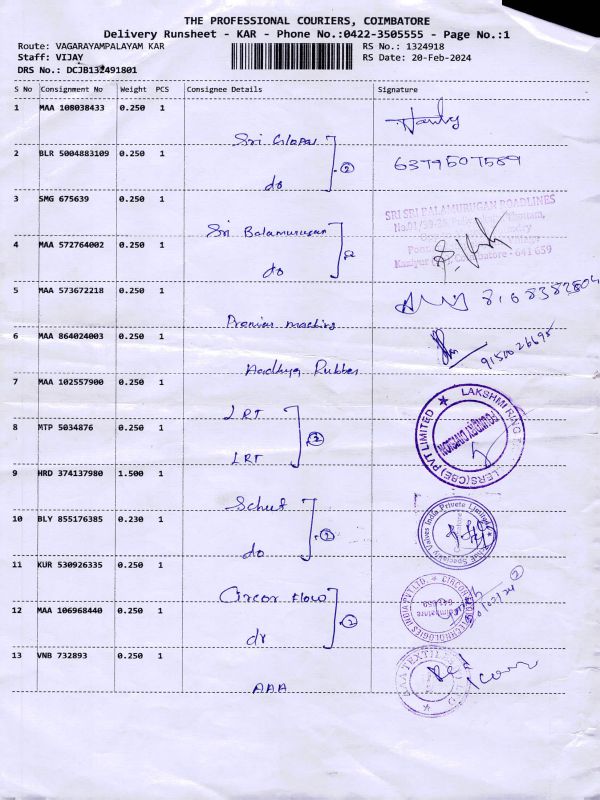 THE PROFESSIONAL COURIERS, COIMBATORE
Delivery Runsheet - KAR - Phone No.:0422-3505555 - Page No.:1
Route: VAGARAYAMPALAYAM KAR RS No.: 1324918
Staff: VIJAY RS Date: 20-Feb-2024
DRS No.: DCJB132491801
S No Consignment No Weight PCS Consignee Details Signature
1 MAA 108038433 0.250 1
Sri
2 BLR 5004883109 0.250 1 6379507589
do 2
3 SMG 675639 0.250 1
SRI SRI BALAMURUGAN ROADLINES
Sri Balamurugan
4 MAA 572764002 0.250 1
Coimbatore - 641 659
do 2
5 MAA 573672218 0.250 1
Premier machine
6 MAA 864024003 0.250 1 9150026695
Aadhya Rubber
7 MAA 102557900 0.250 1
LRT
LAKSHMI RING
LERS(CBE) PVT LIMITED
8 MTP 5034876 0.250 1
LRT 2
9 HRD 374137980 1.500 1
Schuf
10 BLY 855176385 0.230 1
Specialty Valves India Private Limited
do 2
11 KUR 530926335 0.250 1
Circor Flow
CIRCOR FLOW TECHNOLOGIES INDIA PVT LTD.
12 MAA 106968440 0.250 1
2
13 VNB 732893 0.250 1
AAA
AAA TEXTILE